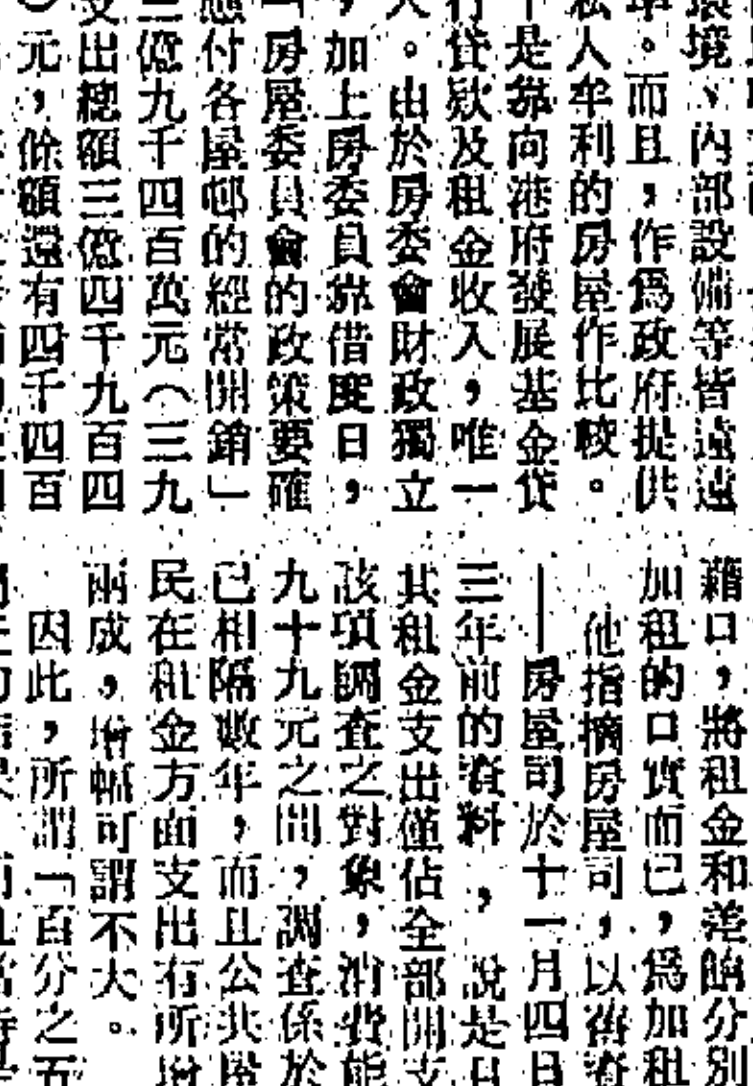 環境、內部設備等皆遠遠
率。而且，作爲政府提供
私人牟利的房屋作比較。
是靠向港府發展基金貸
行貸欵及租金收入，唯一
。由於房委會財政獨立
，加上房委員靠借度日，
「房屋委員會的政策要確
應付各屋邨的經常開銷」
三億九千四百萬元（三九
支出總額三億四千九百四
元，餘額還有四千四百
藉口，將租金和差餉分別
加租的口實而已，爲加租
他指摘房屋司，以舊資
——房屋司於十一月四日
三年前的資料，說是
其租金支出僅佔全部開支
該項調查之對象，消費能
九十九元之間，調查係於
已相隔數年，而且公共屋
民在租金方面支出有所增
兩成，增幅可謂不大。
因此，所謂「百分之五